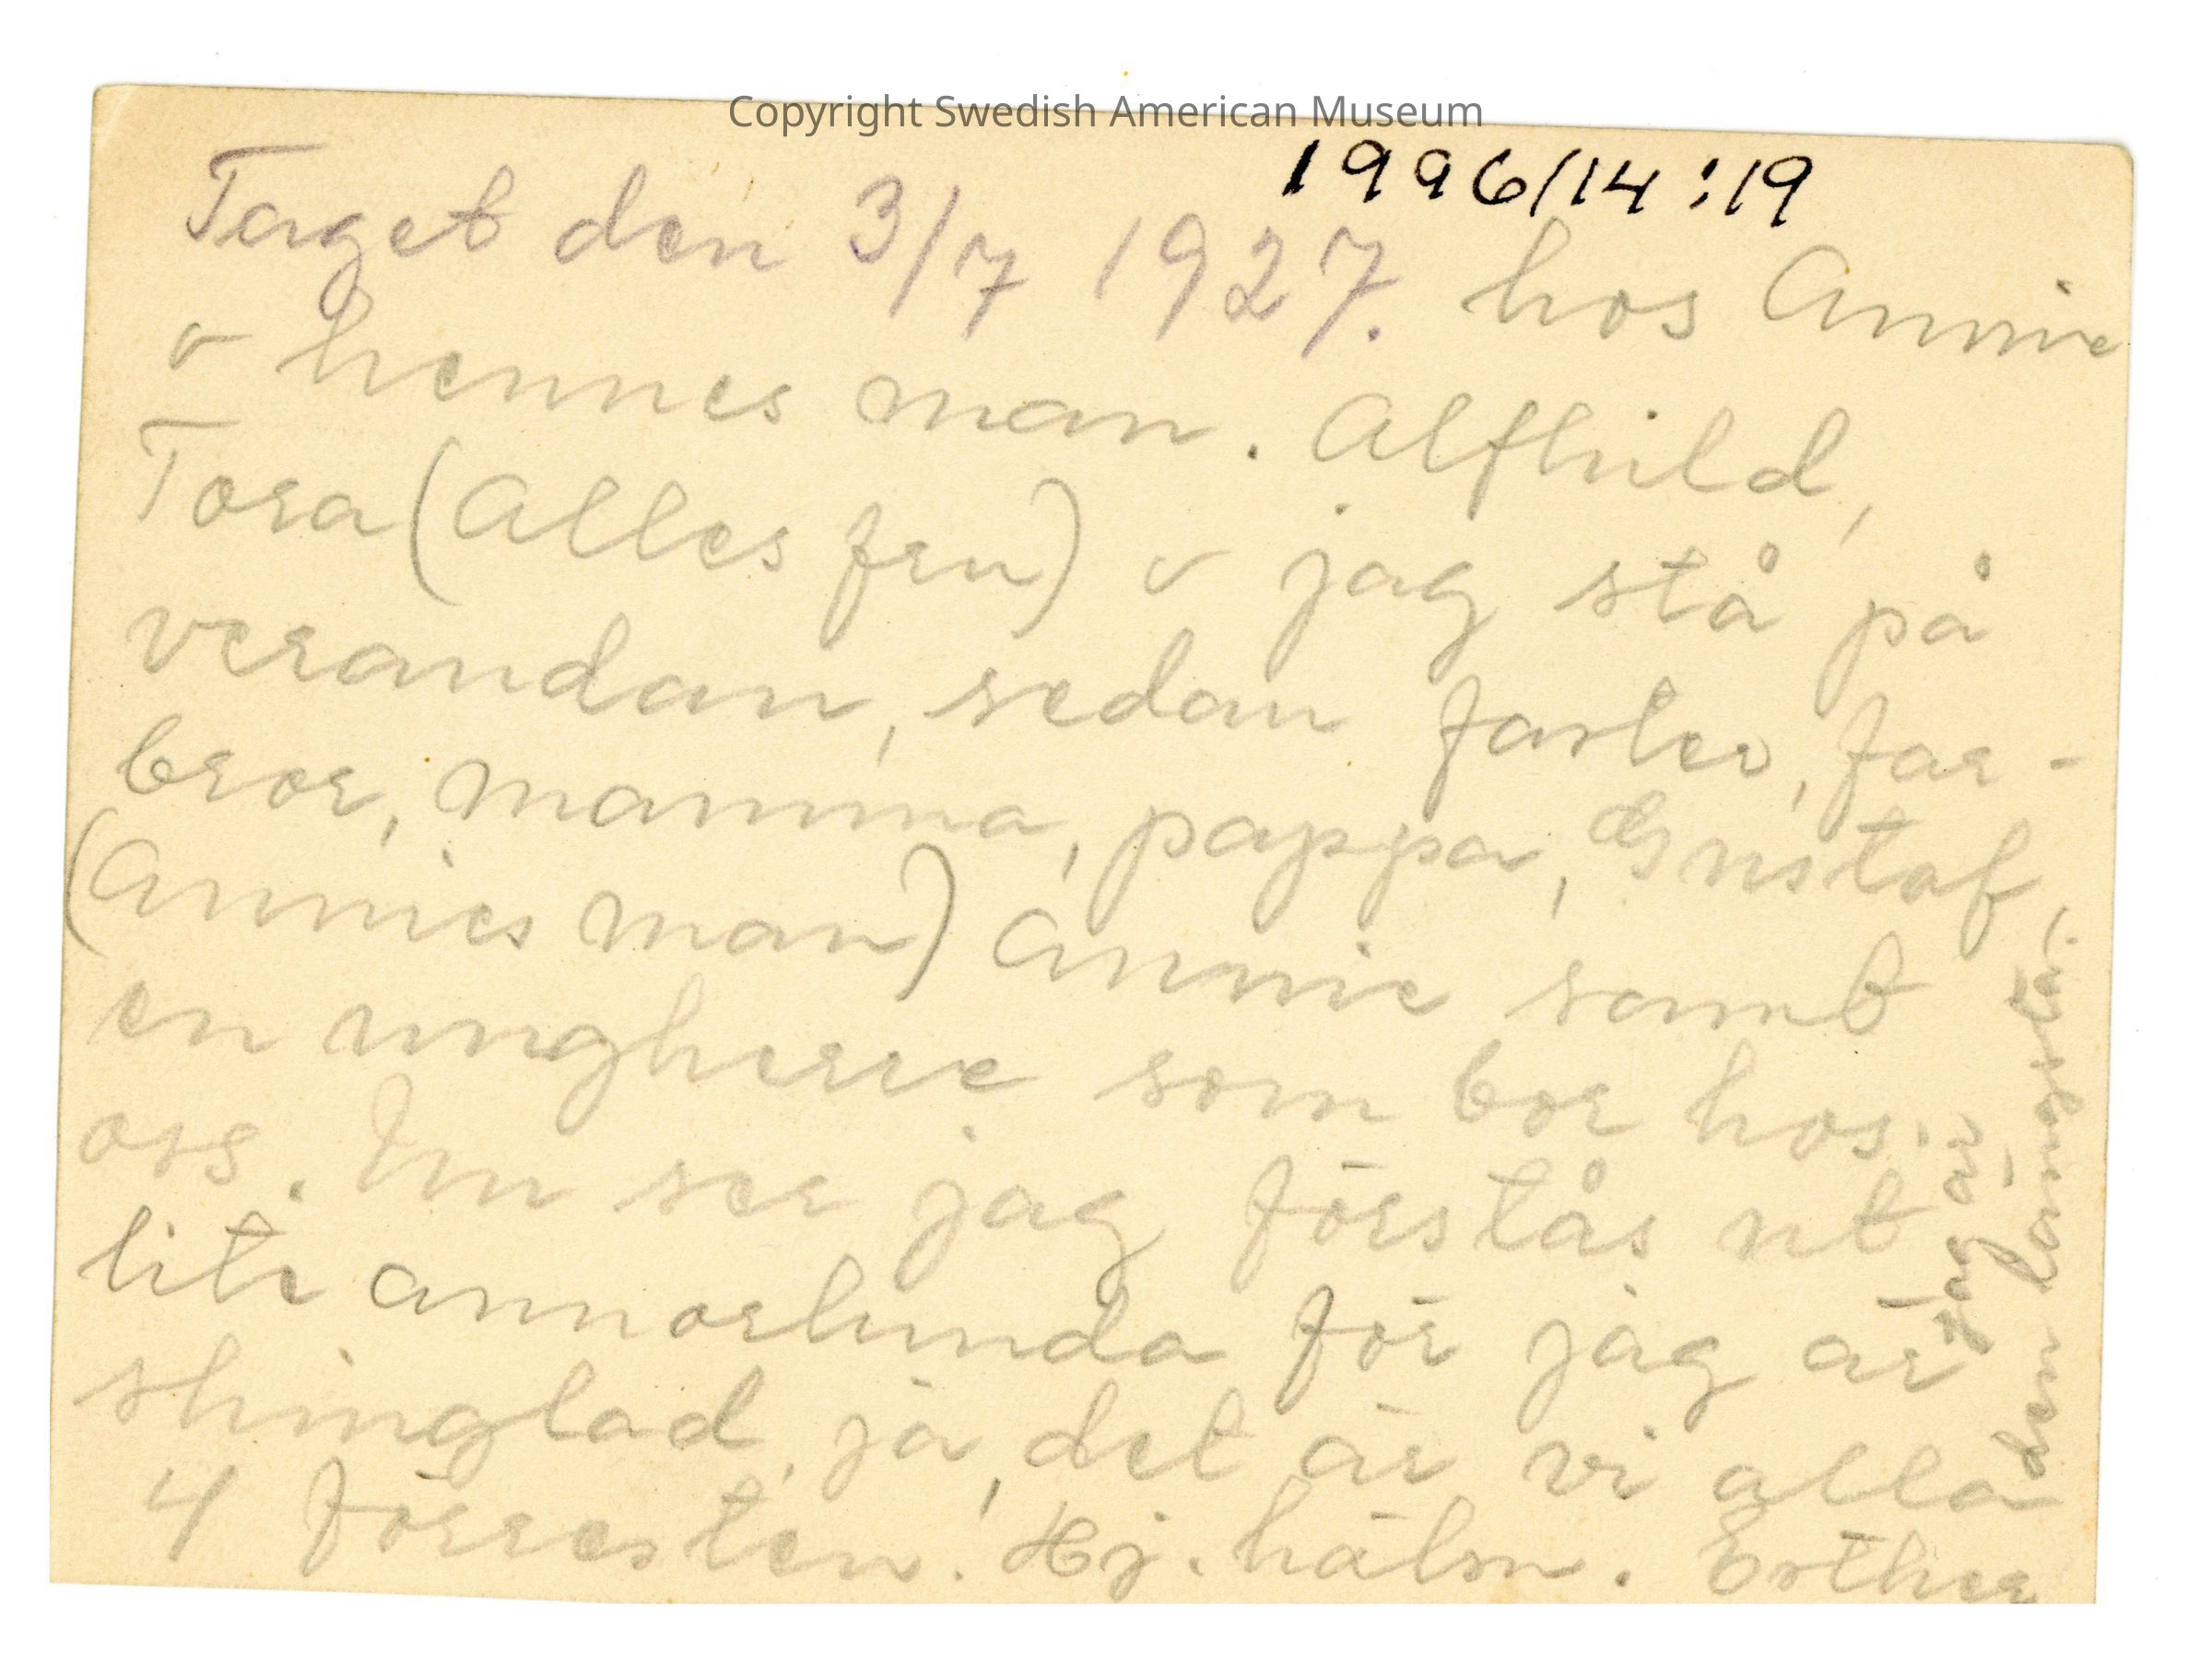 Copyright Swedish American Museum
1996/14:19
Taget den 3/7 1927. hos Annie
o hennes man. Alfhild,
Tora (Alles fru) o jag stå på
verandan, sedan faster, far-
bror, mamma, pappa, Gustaf,
(Annies man) Annie samt
en ungherre som bor hos
oss. Nu ser jag förstås ut
lite annorlunda för jag är
shinglad, ja, det är vi alla
4 förresten. Hj. häls. Esther
jag är
den längsta.